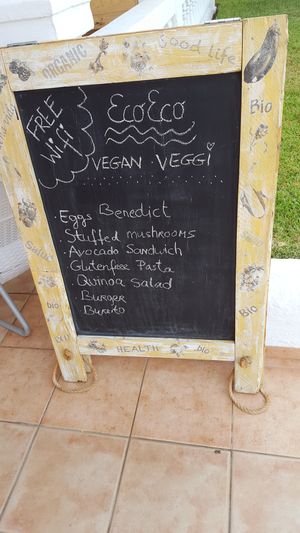 ORGANIC
Good life
FREE
Wifi
EcoEco
VEGAN VEGGI
Bio
· Eggs Benedict
· Stuffed mushrooms
· Avocado Sandwich
· Glutenfree Pasta
· Quinoa Salad
· Burger
· Burrito
bio
BIO
HEALTH
bio
bio